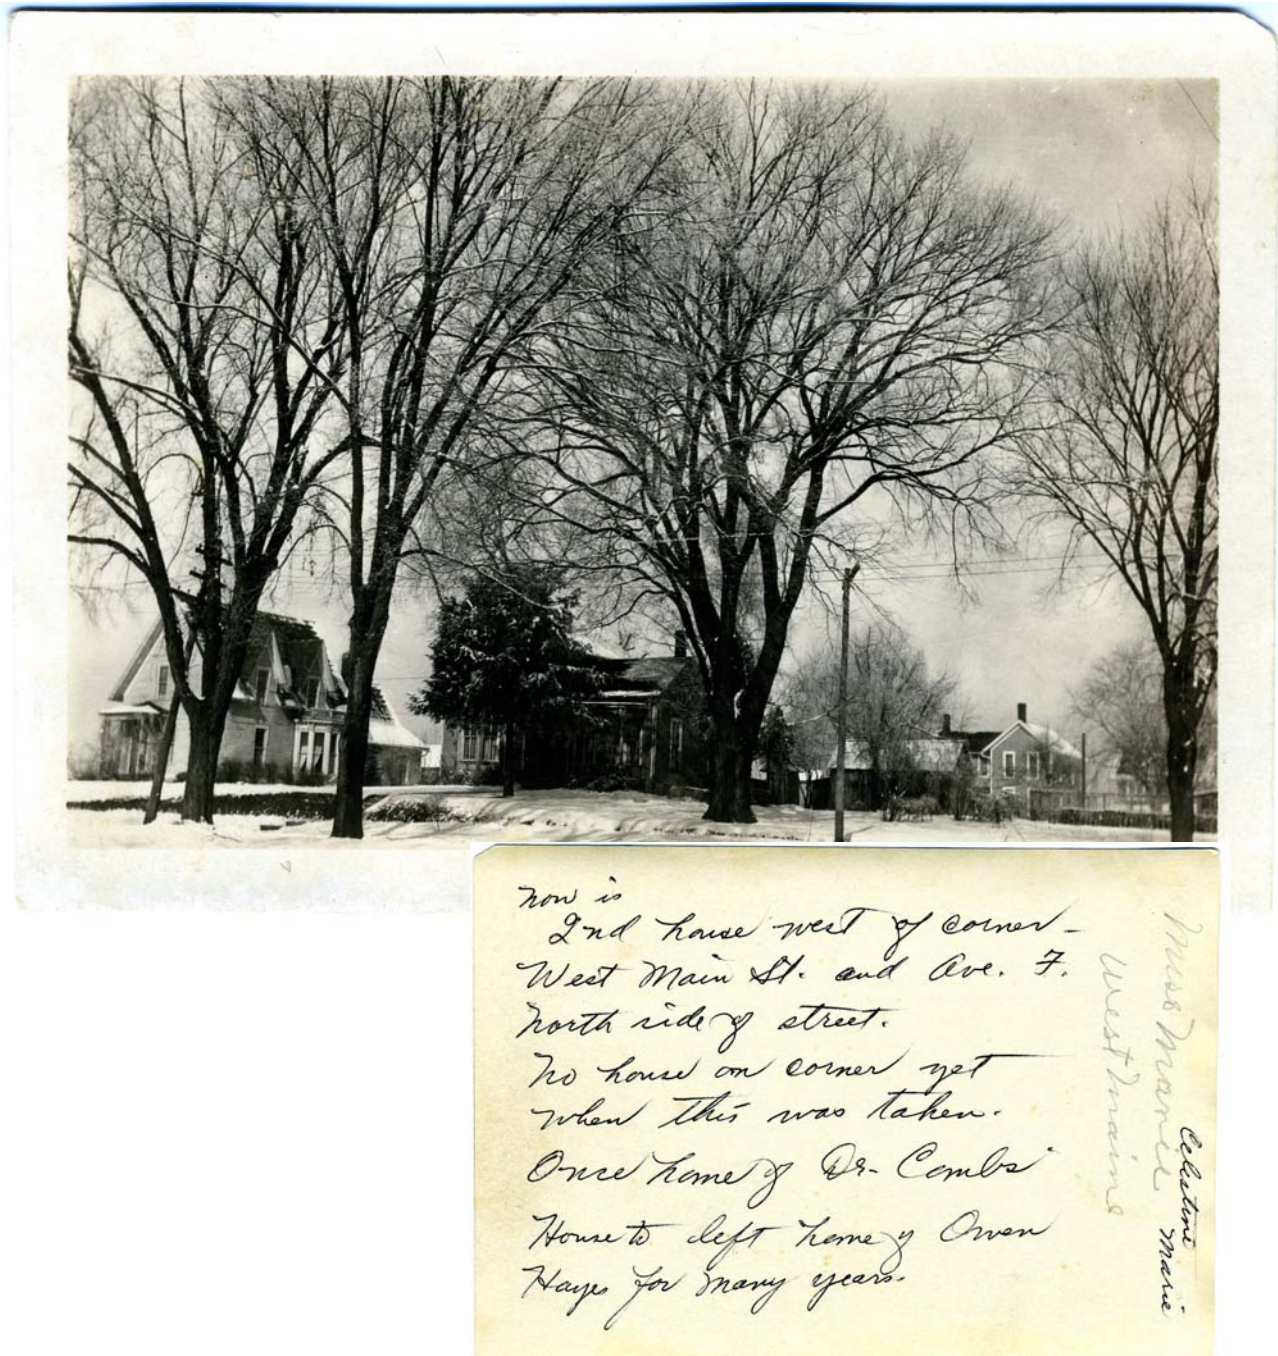 Now is
2nd house west of corner -
West Main St. and Ave. F.
North side of street.
No house on corner yet
when this was taken.
Once home of Dr. Combs
House to left home of Owen
Hayes for many years.
Miss
West Maine
Celestine Marie